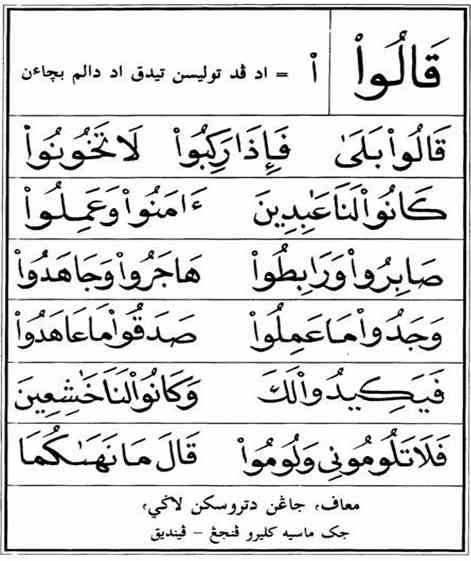 قَالُواْ
اْ = اد ڤد توليسن تيدق اد دالم بچاءن
قَالُواْ بَلَىٰ فَإِذَا رَكِبُواْ لَا تَخُونُواْ
كَانُواْ لَنَا عَٰبِدِينَ ءَامَنُواْ وَعَمِلُواْ
صَابِرُواْ وَرَابِطُواْ هَاجَرُواْ وَجَاهَدُواْ
وَجَدُواْ مَا عَمِلُواْ صَدَقُواْ مَا عَاهَدُواْ
فَيَكِيدُواْ لَكَ وَكَانُواْ لَنَا خَٰشِعِينَ
فَلَا تَلُومُونِي وَلُومُواْ قَالَ مَا نَهَىٰكُمَا
معاف، جاڠن دتروسكن لاڬي،
جک ماسيه كليرو ڤنجڠ - ڤينديق